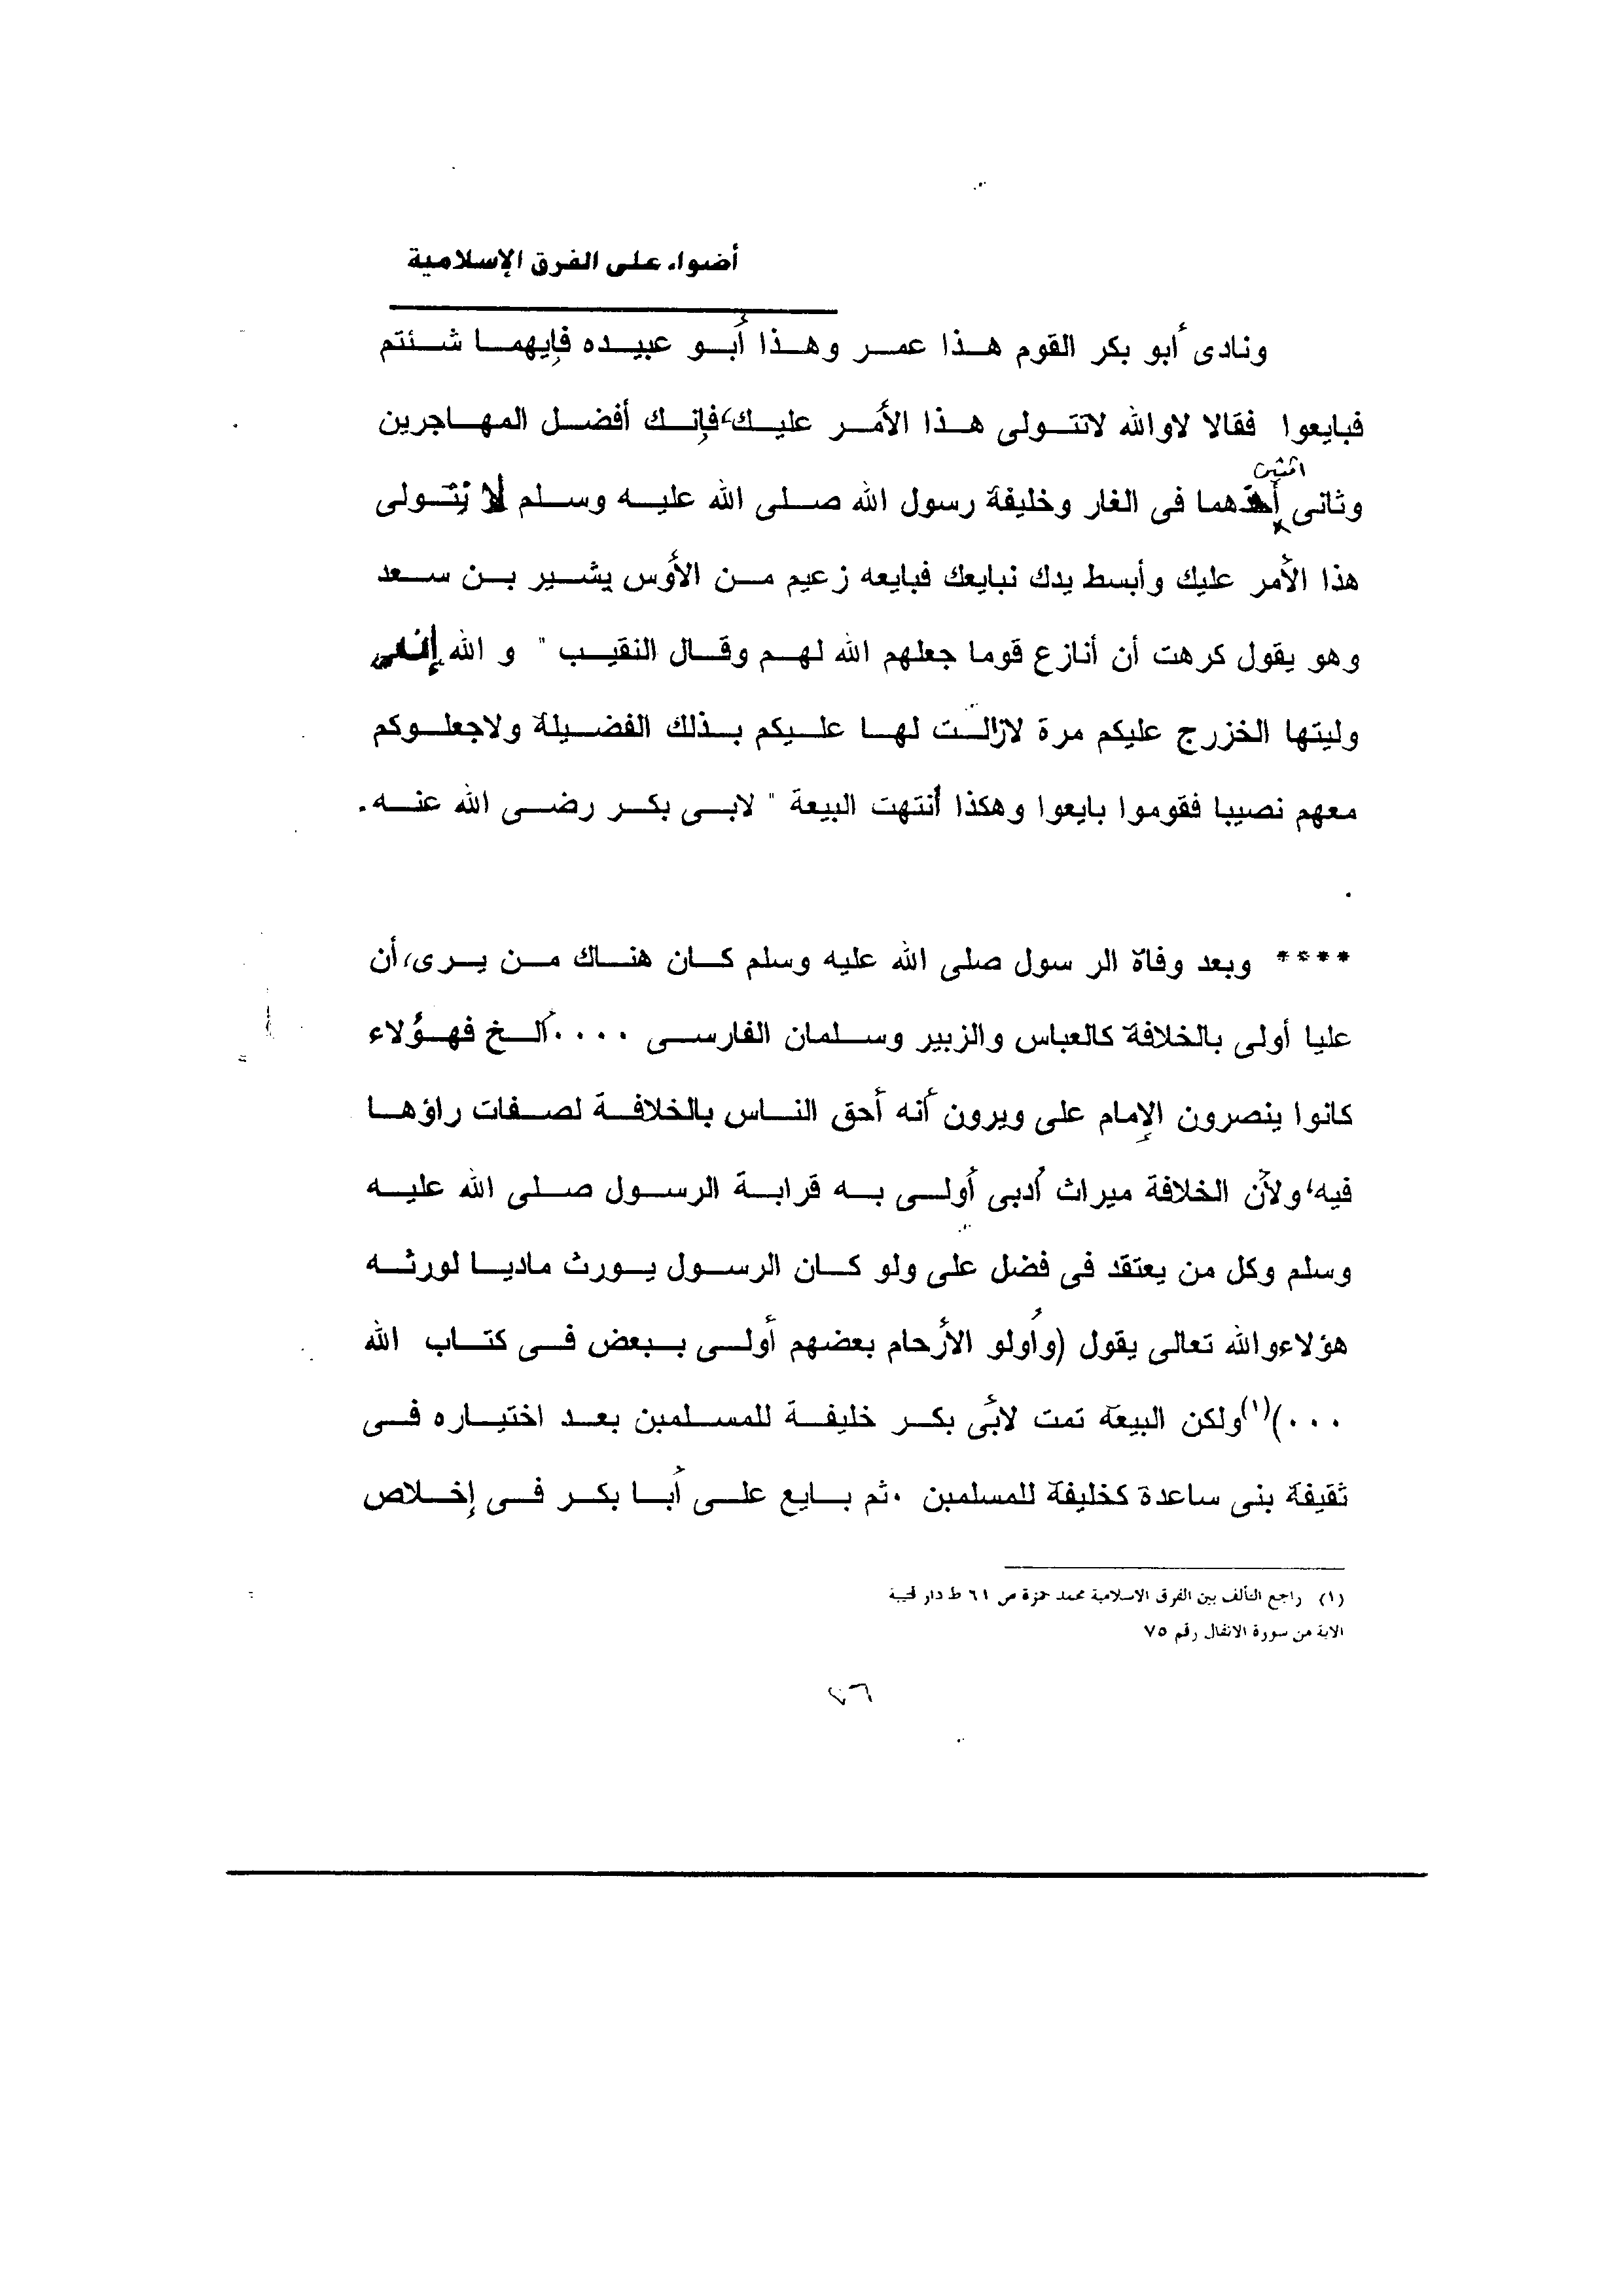 أضواء على الفرق الإسلامية
ونادى أبو بكر القوم هذا عمر وهذا أبو عبيده فإيهما شئتم
فبايعوا فقالا لاوالله لاتتولى هذا الأمر عليك، فإنك أفضل المهاجرين
اثنين
وثانى أحدهما فى الغار وخليفة رسول الله صلى الله عليه وسلم لا نتولى
هذا الأمر عليك وأبسط يدك نبايعك فبايعه زعيم من الأوس يشير بن سعد
وهو يقول كرهت أن أنازع قوما جعلهم الله لهم وقال النقيب " و الله
وليتها الخزرج عليكم مرة لازالت لها عليكم بذلك الفضيلة ولاجعلوكم
معهم نصيبا فقوموا بايعوا وهكذا أنتهت البيعة " لابى بكر رضى الله عنه.
.
**** وبعد وفاة الر سول صلى الله عليه وسلم كان هناك من يرى، أن
عليا أولى بالخلافة كالعباس والزبير وسلمان الفارسى ....ألخ فهؤلاء
كانوا ينصرون الإمام على ويرون أنه أحق الناس بالخلافة لصفات راؤها
فيه، ولأن الخلافة ميراث أدبى أولى به قرابة الرسول صلى الله عليه
وسلم وكل من يعتقد فى فضل على ولو كان الرسول يورث ماديا لورثه
هؤلاءوالله تعالى يقول (وأولو الأرحام بعضهم أولى ببعض فى كتاب الله
...)(١) ولكن البيعة تمت لأبى بكر خليفة للمسلمين بعد اختياره فى
ثقيفة بنى ساعدة كخليفة للمسلمين .ثم بايع على أبا بكر فى إخلاص
(١) راجع التألف بين الفرق الاسلامية محمد حمزة ص ٦١ ط دار قتيبة
الاية من سورة الانفال رقم ٧٥